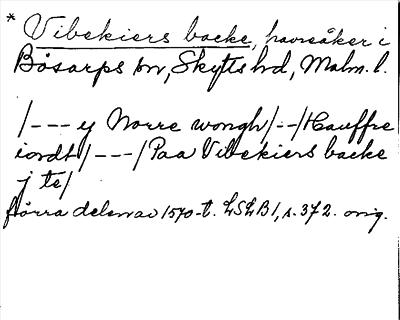 * Vibekiers backe, havreåker i
Bösarps sn, Skytts hd, Malm. l.
/--- y Norre wongh/--/Hauffre
iordh/---/Paa Vibekiers backe
j te/
Förra delen av 1570-t. LSLB1, s. 372. orig.